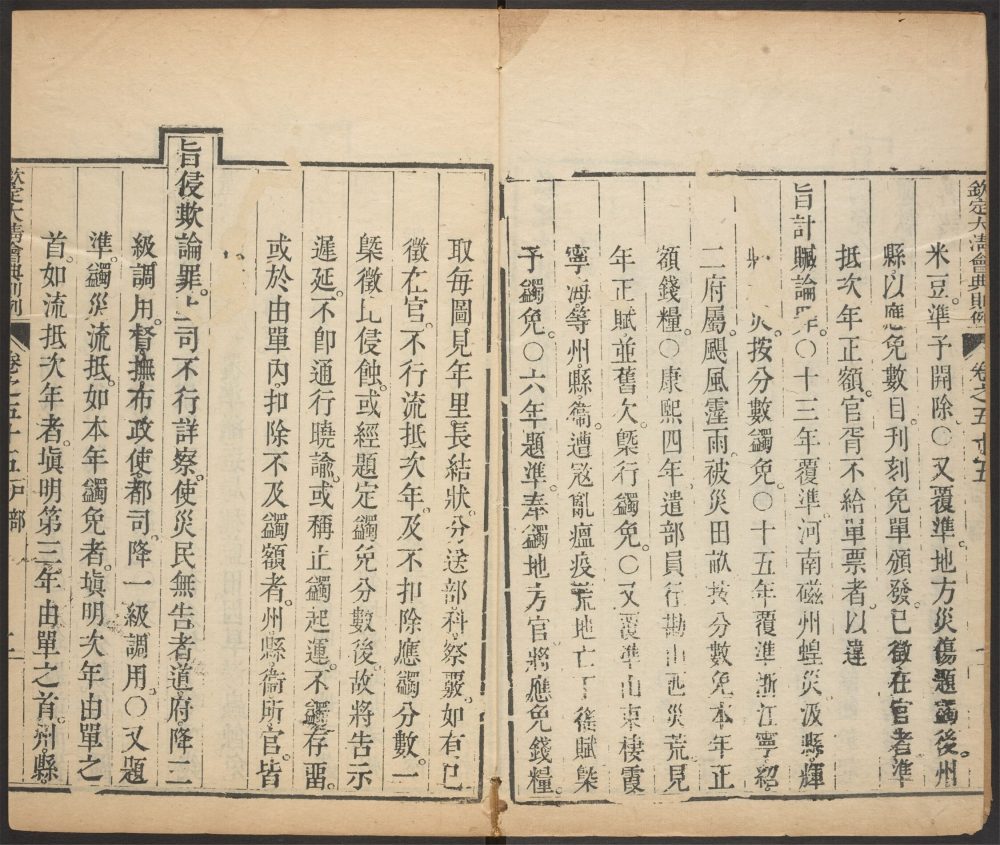 欽定大清會典則例
卷之五十五
米豆準予開除。○又覆準地方災傷題蠲後。州
縣以應免數目。刊刻免單頒發。已徵在官者。準
抵次年正額。官胥不給單票者。以違
旨計贓論。○十三年覆準。河南磁州蝗災。汲縣輝
災。按分數蠲免。○十五年覆準。浙江寧紹
二府屬。颶風霪雨。被災田畝。按分數免本年正
額錢糧。○康熙四年。遣部員行勘山西災荒。見
年正賦並舊欠。槩行蠲免。○又覆準。山東棲霞
寧海等州縣衞。遭寇亂瘟疫。荒地亡丁徭賦。槩
予蠲免。○六年題準。奉蠲地方官。將應免錢糧。
取每圖見年里長結狀。分送部科察覈。如有已
徵在官。不行流抵次年。及不扣除應蠲分數。一
槩徵比侵蝕。或經題定蠲免分數後。故將告示
遲延。不卽通行曉諭。或稱止蠲起運。不蠲存畱。
或於由單內扣除不及蠲額者。州縣衞所官。皆
旨侵欺論罪。上司不行詳察。使災民無告者。道府降三
級調用。督撫布政使都司。降一級調用。○又題
準。蠲災流抵。如本年蠲免者。塡明次年由單之
首。如流抵次年者。塡明第三年由單之首。州縣
欽定大清會典則例
卷之五十五戶部
二